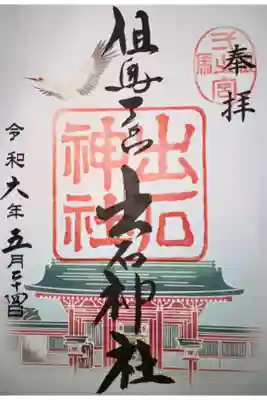 奉拝
但馬一宮 出石神社
出石
神社
令和六年五月二十四日